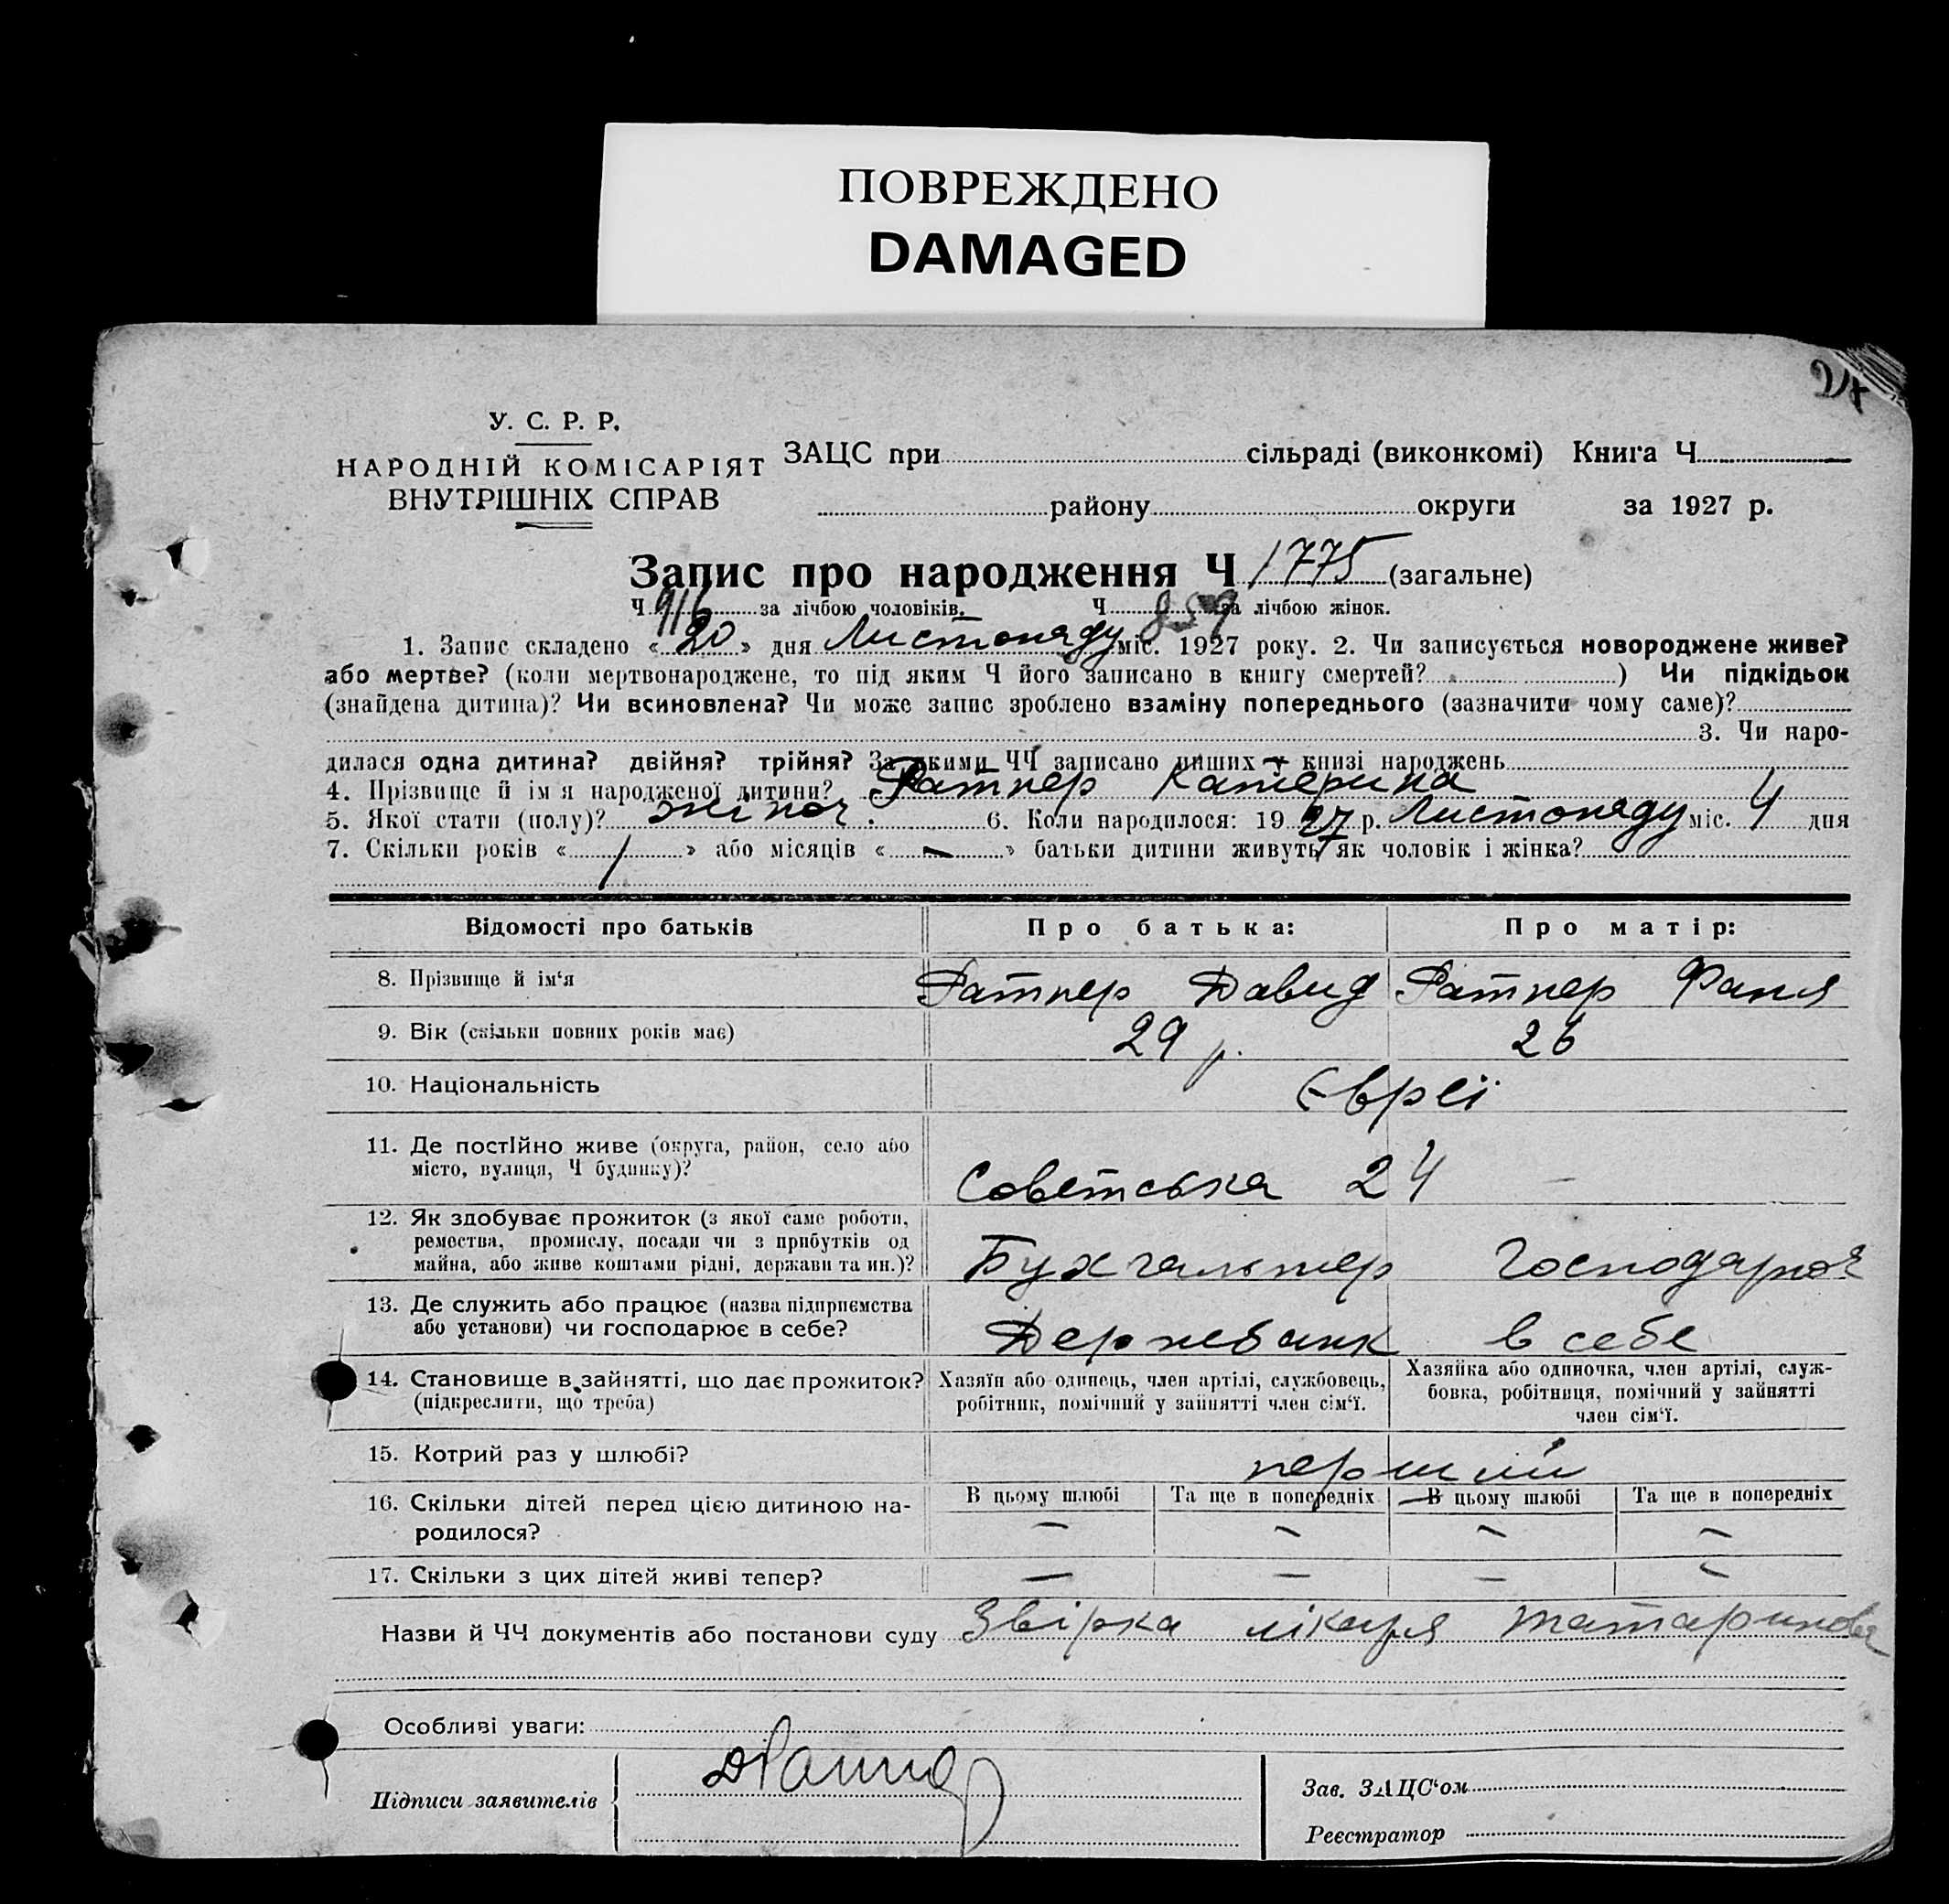 ПОВРЕЖДЕНО
DAMAGED
У. С. Р. Р.
НАРОДНІЙ КОМІСАРІЯТ
ВНУТРІШНІХ СПРАВ
ЗАЦС при сільраді (виконкомі) Книга Ч
району округи за 1927 р.
Запис про народження Ч 1775 (загальне)
Ч 916 за лічбою чоловіків. Ч 859 за лічбою жінок.
1. Запис складено « 20 » дня Листопаду міс. 1927 року. 2. Чи записується новороджене живе?
або мертве? (коли мертвонароджене, то під яким Ч його записано в книгу смертей? ) Чи підкідьок
(знайдена дитина)? Чи всиновлена? Чи може запис зроблено взаміну попереднього (зазначити чому саме)?
3. Чи наро-
дилася одна дитина? двійня? трійня? За якими ЧЧ записано инших у книзі народжень
4. Прізвище й ім'я народженої дитини? Ратнер Катерина
5. Якої стати (полу)? жіноч. 6. Коли народилося: 19 27 р. Листопаду міс. 4 дня
7. Скільки років « 1 » або місяців « — » батьки дитини живуть як чоловік і жінка?
Відомості про батьків Про батька: Про матір:
8. Прізвище й ім'я Ратнер Давид Ратнер Фаня
9. Вік (скільки повних років має) 29 р. 26
10. Національність Євреї
11. Де постійно живе (округа, район, село або
місто, вулиця, Ч будинку)? Совєтська 24 —
12. Як здобуває прожиток (з якої саме роботи,
ремества, промислу, посади чи з прибутків од
майна, або живе коштами рідні, держави та ин.)? Бухгальтер Господарюв
13. Де служить або працює (назва підприємства
або установи) чи господарює в себе? Держбанк в себе
14. Становище в зайнятті, що дає прожиток?
(підкреслити, що треба)
Хазяїн або одинець, член артілі, службовець,
робітник, помічний у зайнятті член сім'ї.
Хазяйка або одиночка, член артілі, служ-
бовка, робітниця, помічний у зайнятті
член сім'ї.
15. Котрий раз у шлюбі? перший
16. Скільки дітей перед цією дитиною на-
родилося?
В цьому шлюбі Та ще в попередніх В цьому шлюбі Та ще в попередніх
— — — —
17. Скільки з цих дітей живі тепер? — — — —
Назви й ЧЧ документів або постанови суду Звірка лікаря Татаринова
Особливі уваги:
Підписи заявителів
Зав. ЗАЦС'ом
Реєстратор